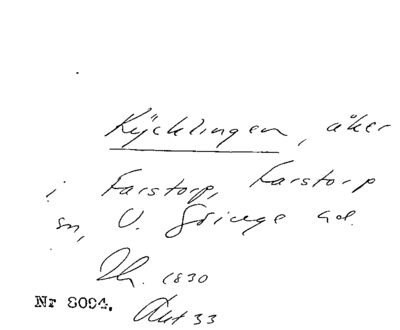 Kycklingen, åker
i Farstorp, Farstorp
sn, V. Göinge hd.
1830
Nr 8094. Akt 33